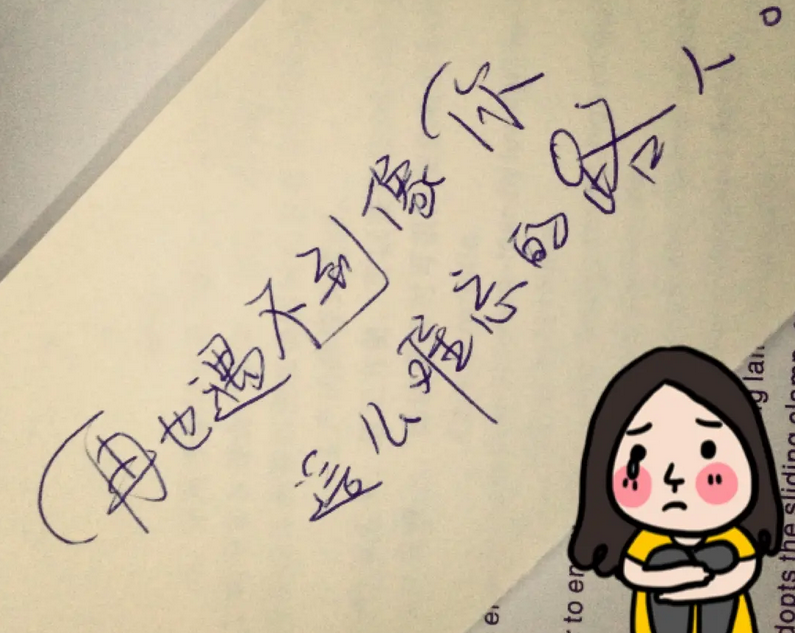 (再也遇不到像(你
这么难忘的路人。
to
dopts the sliding clamp